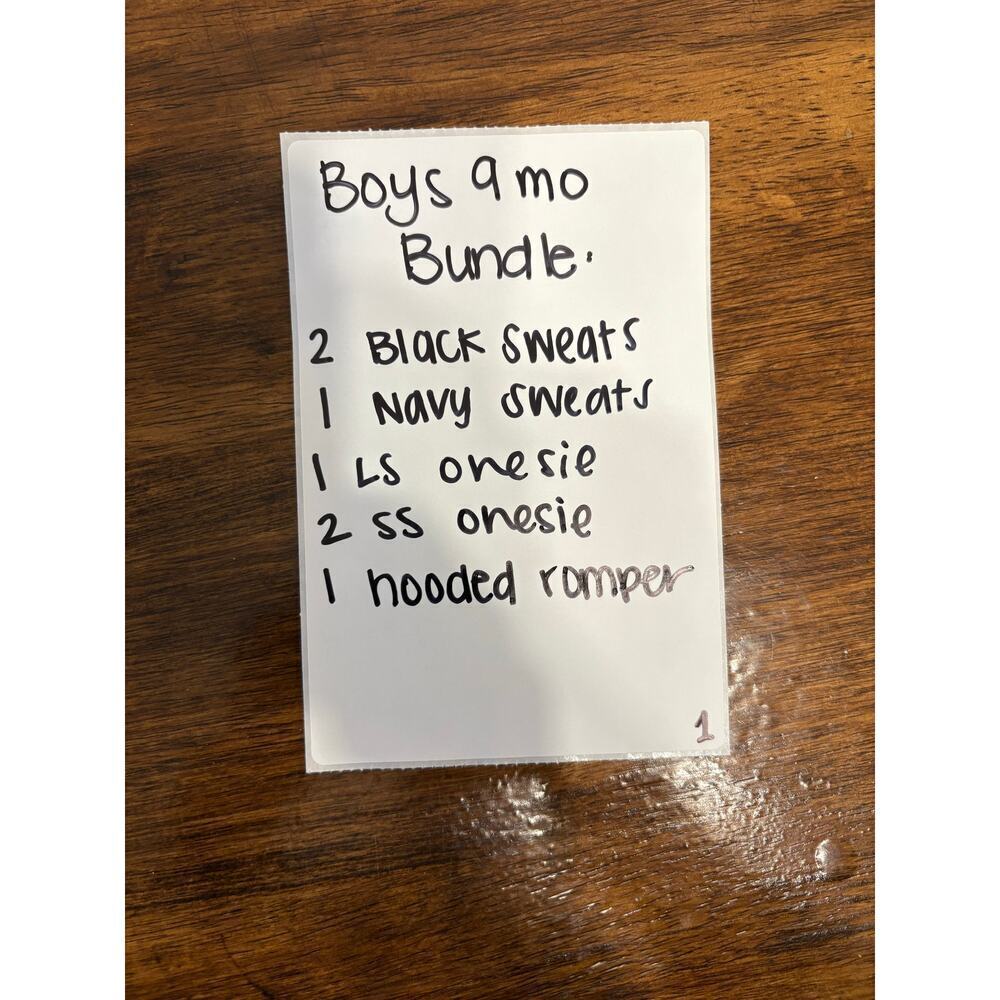 Boys 9 mo
Bundle.
2 Black Sweats
1 Navy Sweats
1 LS onesie
2 SS onesie
1 hooded romper
1